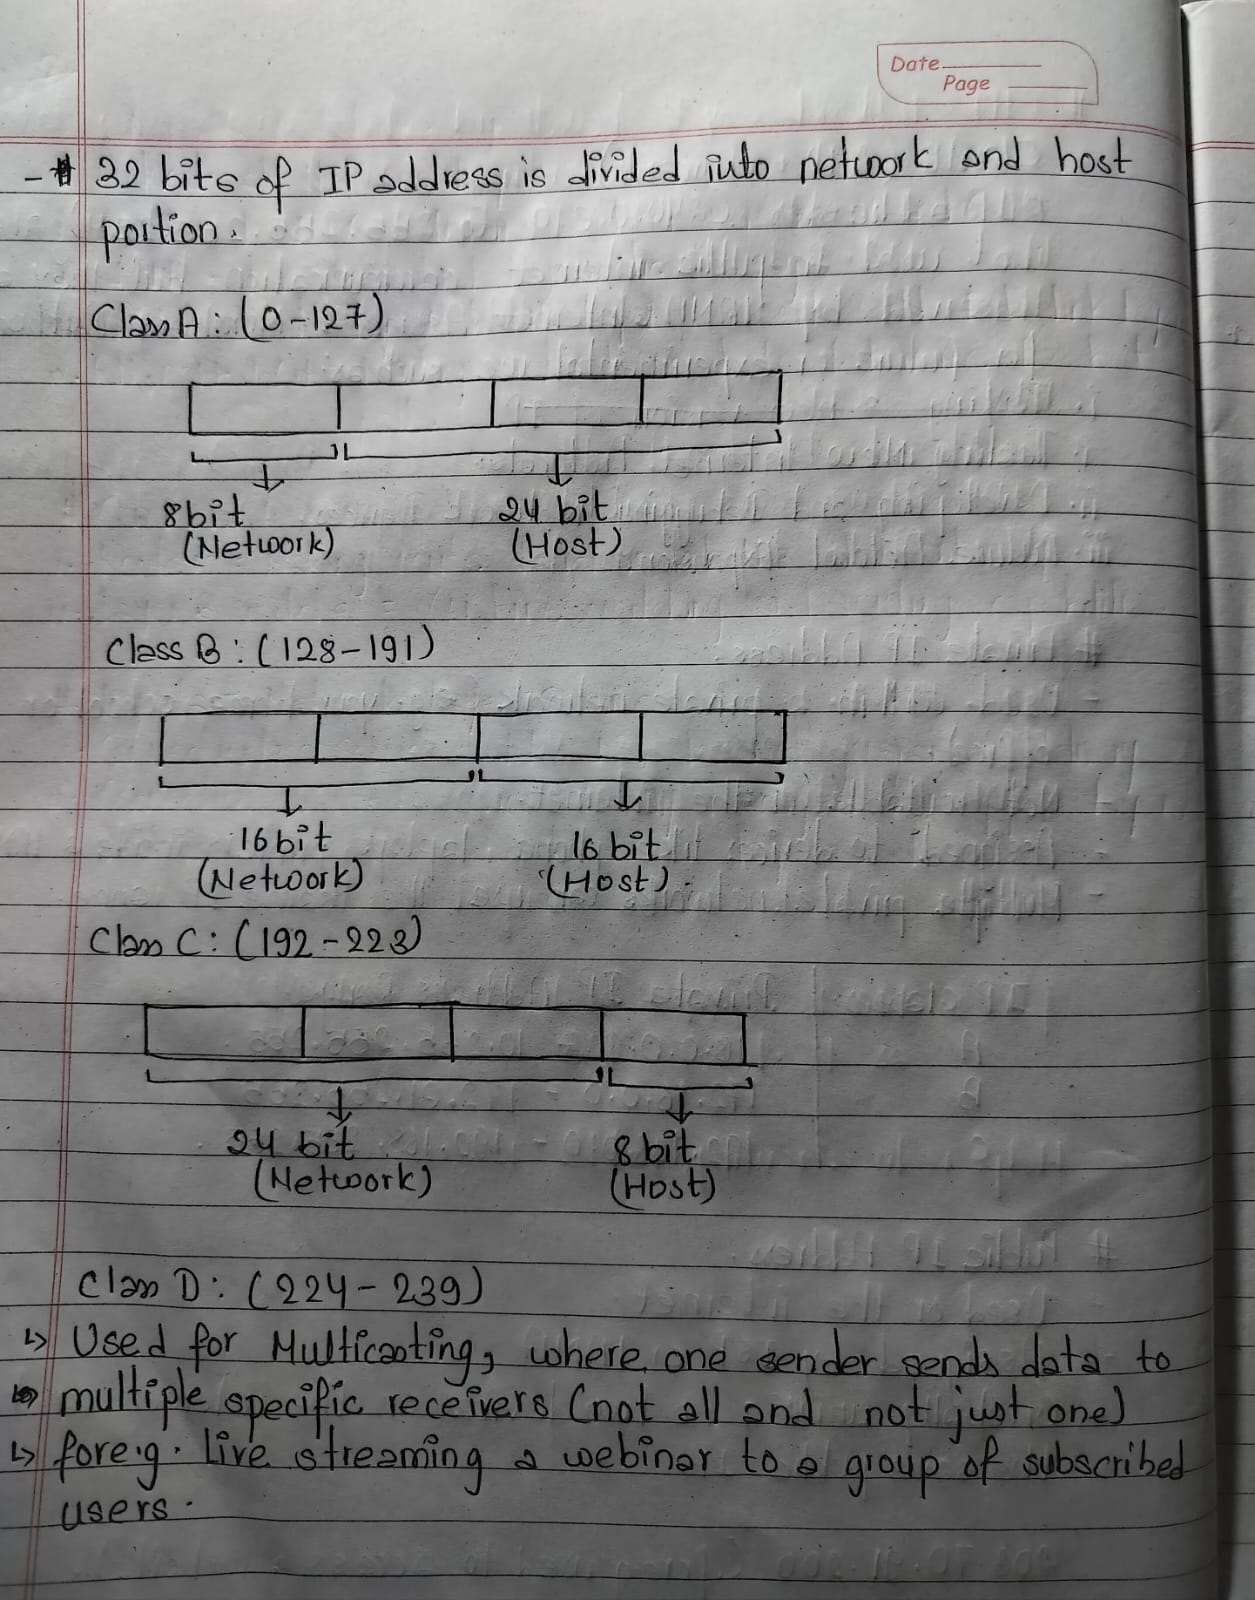 Date
Page
- # 32 bits of IP address is divided into network and host
portion.
Class A : (0-127)
8bit 24 bit
(Network) (Host)
Class B : (128-191)
16bit 16 bit
(Network) (Host)
Class C : (192-223)
24 bit 8 bit
(Network) (Host)
Class D : (224-239)
↳ Used for Multicasting, where one sender sends data to
multiple specific receivers (not all and not just one)
↳ for e.g. live streaming a webinar to a group of subscribed
users.